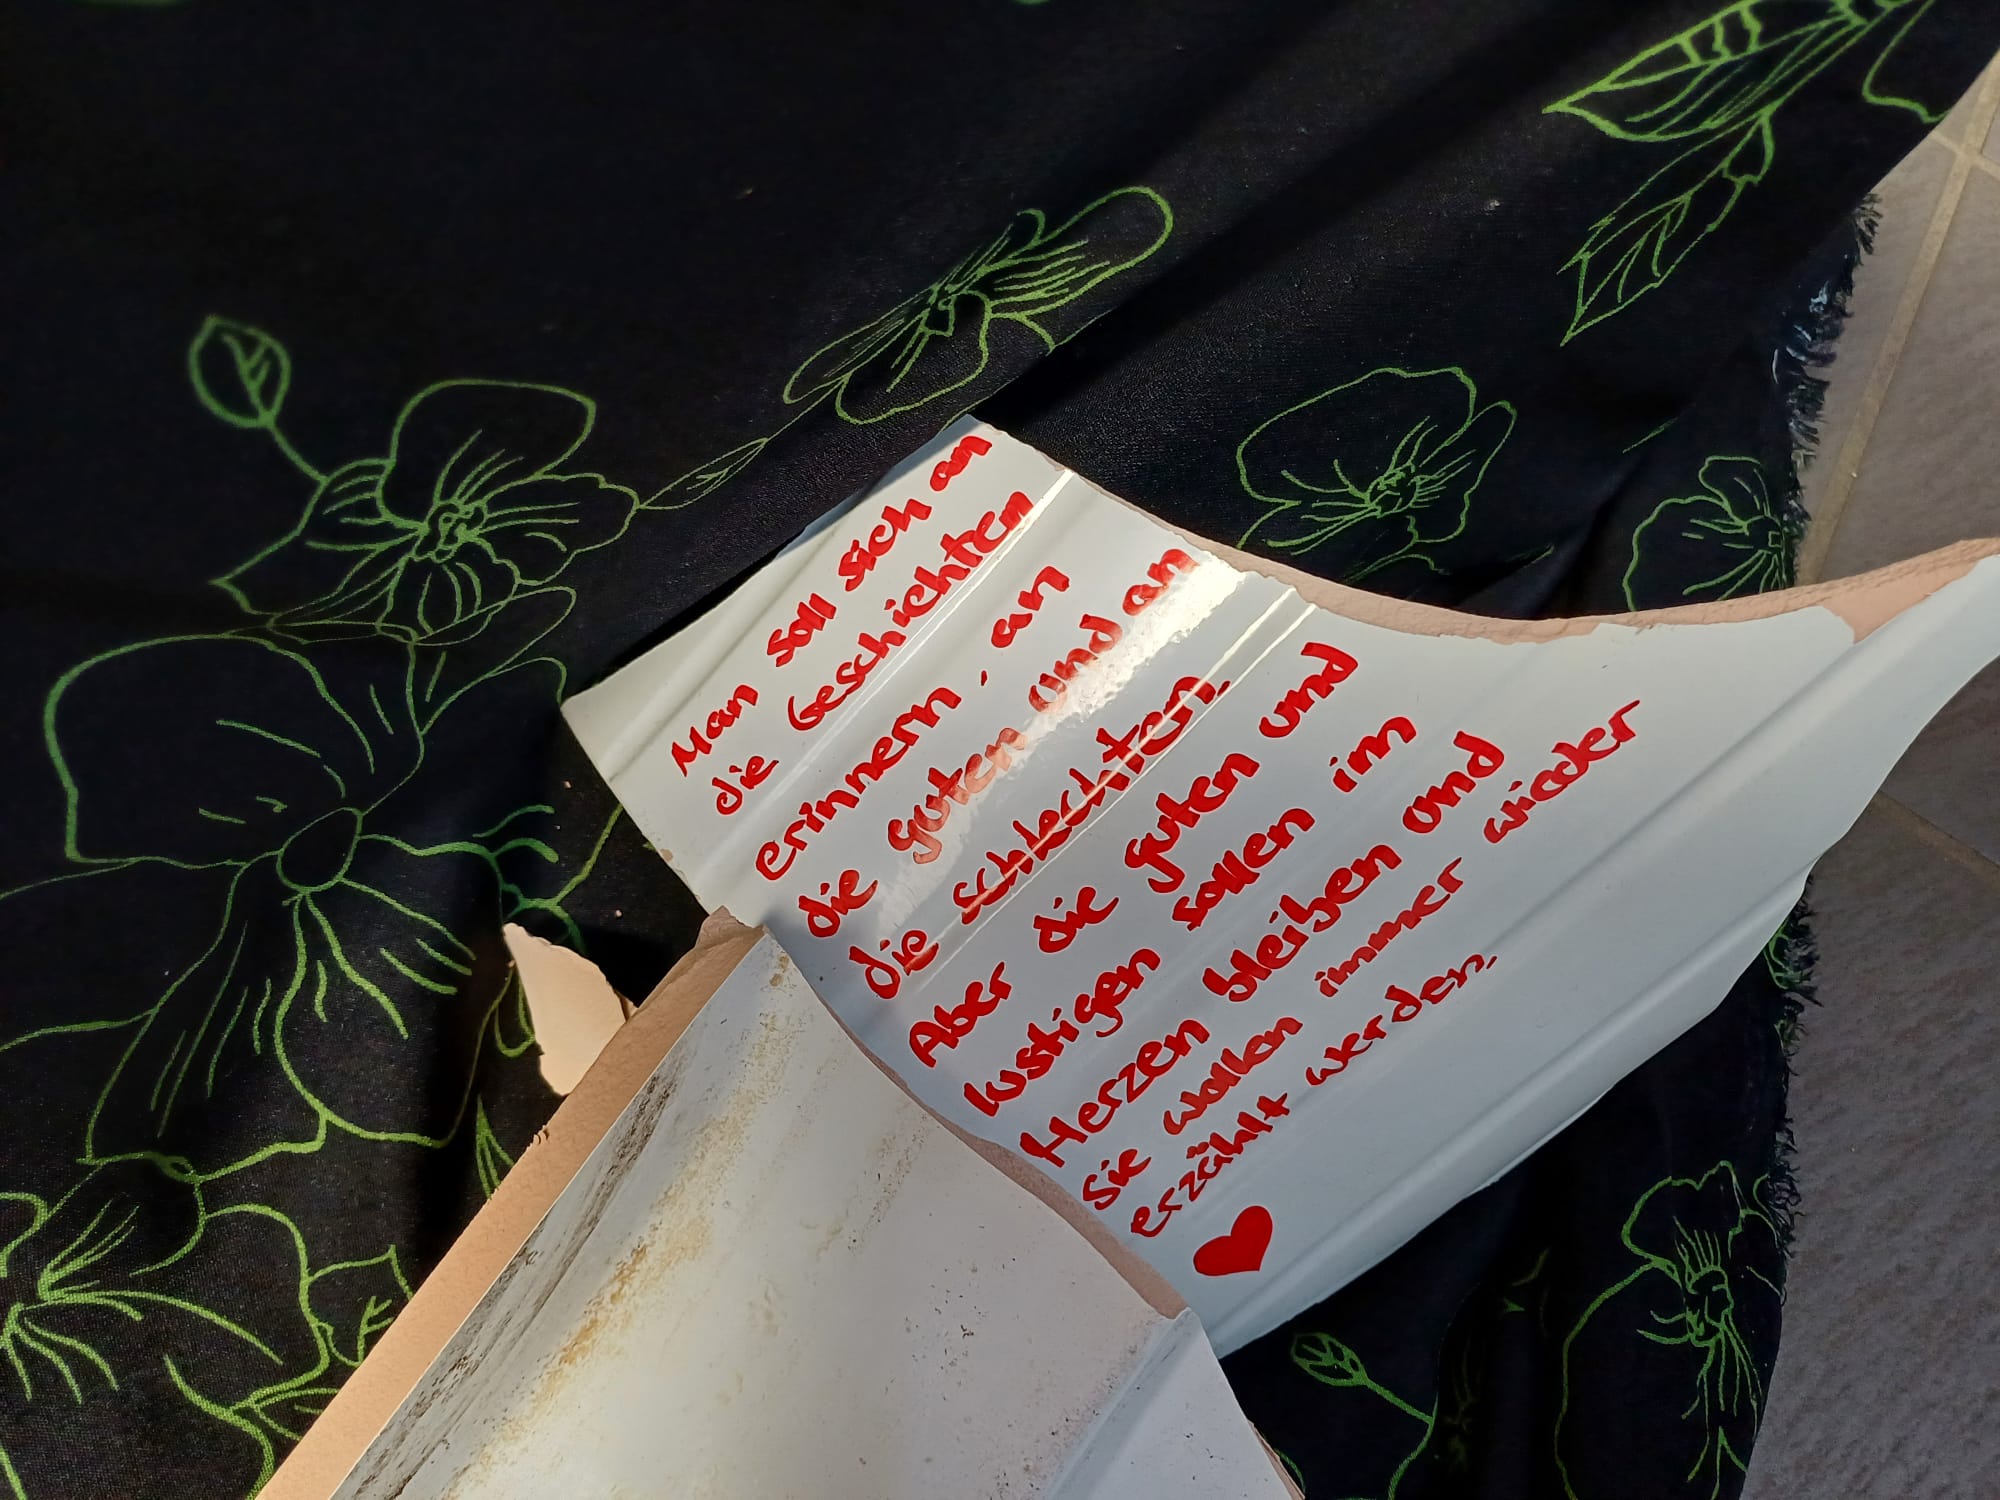 Man soll sich an
die Geschichten
erinnern, an
die guten und an
die schlechten.
Aber die guten und
lustigen sollen im
Herzen bleiben und
Sie wollen immer wieder
erzählt werden.